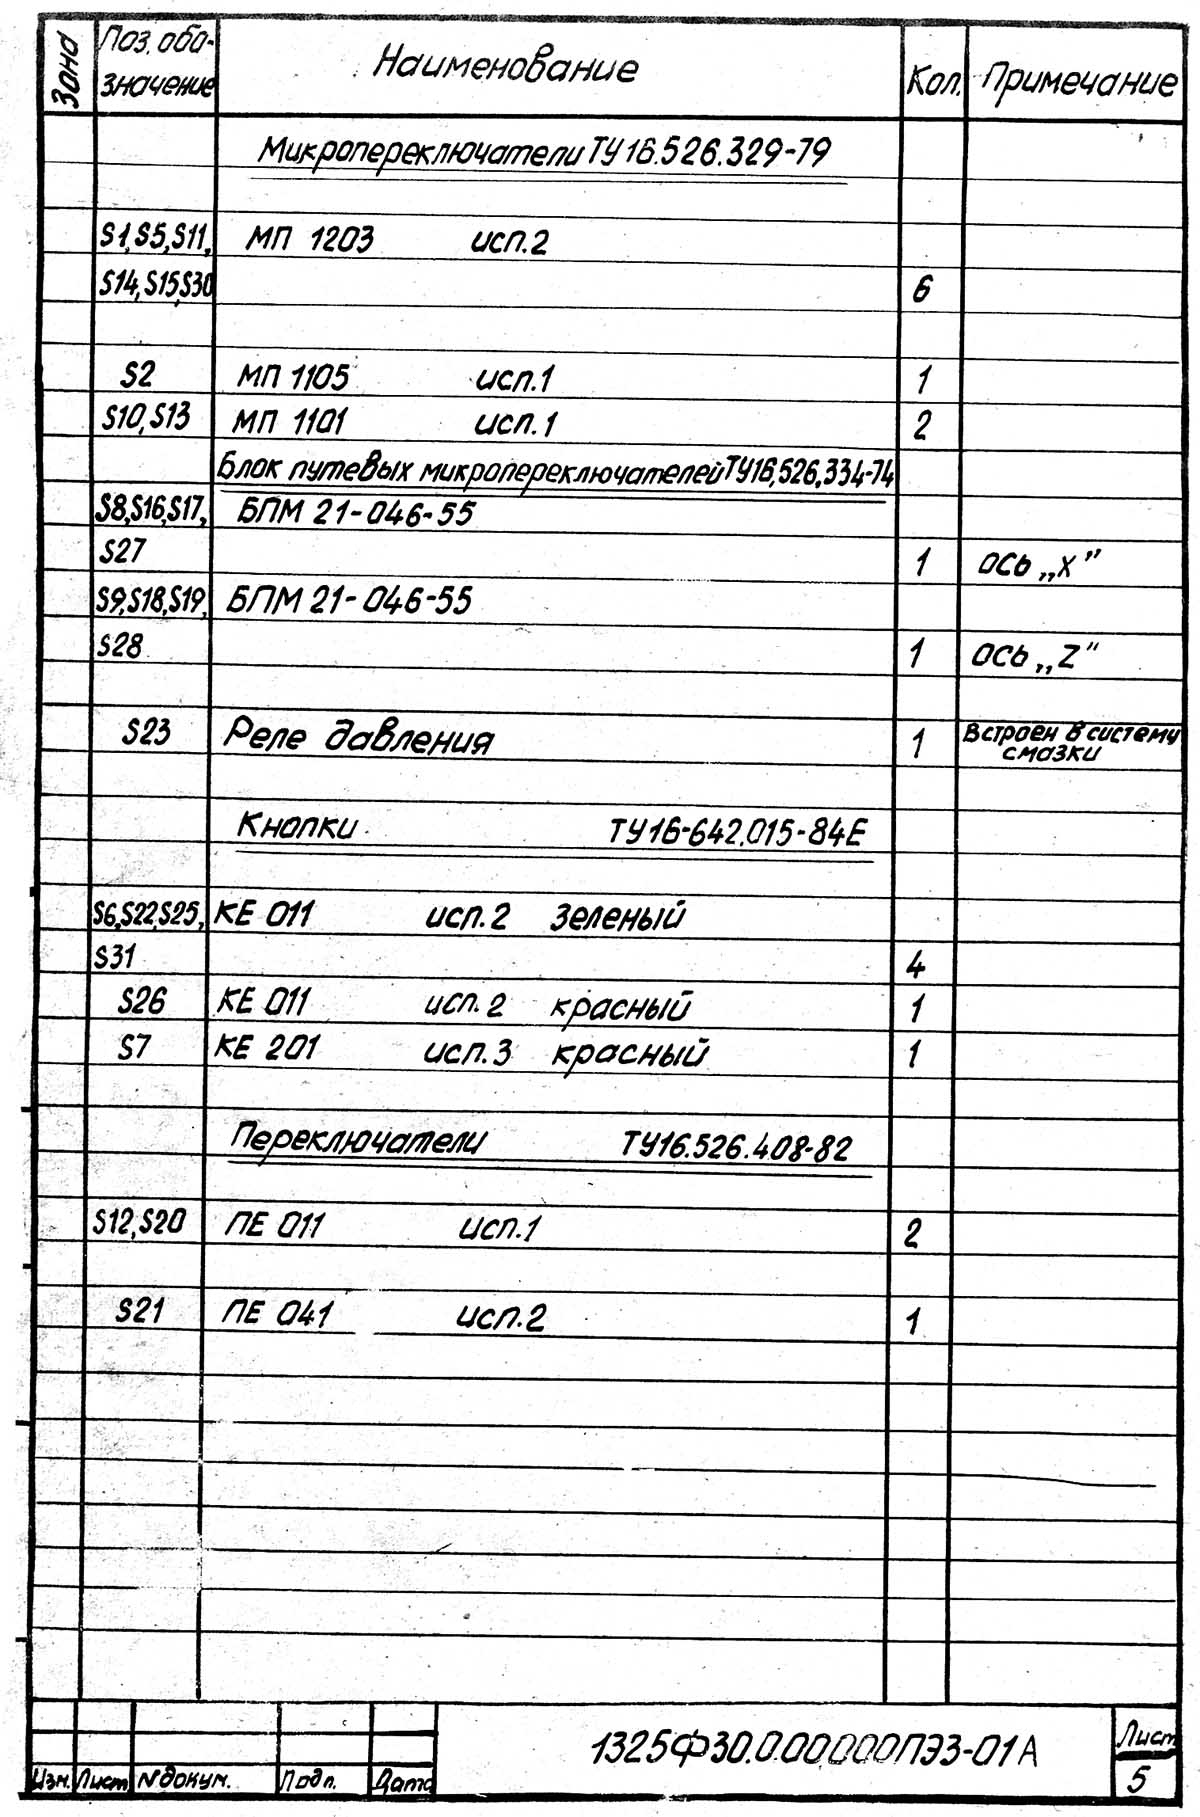 Зона Поз. обо- Наименование Кол. Примечание
значение
Микропереключатели ТУ16.526.329-79
S1,S5,S11, МП 1203 исп.2
S14,S15,S30 6
S2 МП 1105 исп.1 1
S10,S13 МП 1101 исп.1 2
Блок путевых микропереключателей ТУ16,526,334-74
S8,S16,S17, БПМ 21-046-55
S27 1 ось „X”
S9,S18,S19, БПМ 21-046-55
S28 1 ось „Z”
S23 Реле давления 1 Встроен в систему
смазки
Кнопки ТУ16-642.015-84Е
S6,S22,S25, КЕ 011 исп.2 Зеленый
S31 4
S26 КЕ 011 исп.2 красный 1
S7 КЕ 201 исп.3 красный 1
Переключатели ТУ16.526.408-82
S12,S20 ПЕ 011 исп.1 2
S21 ПЕ 041 исп.2 1
1325Ф30.000000ПЭ3-01А Лист
Изм. Лист №докум. Подп. Дата 5